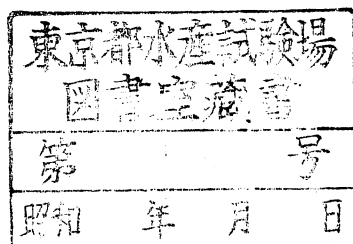 東京都水産試験場
図書室蔵書
第 号
昭和 年 月 日